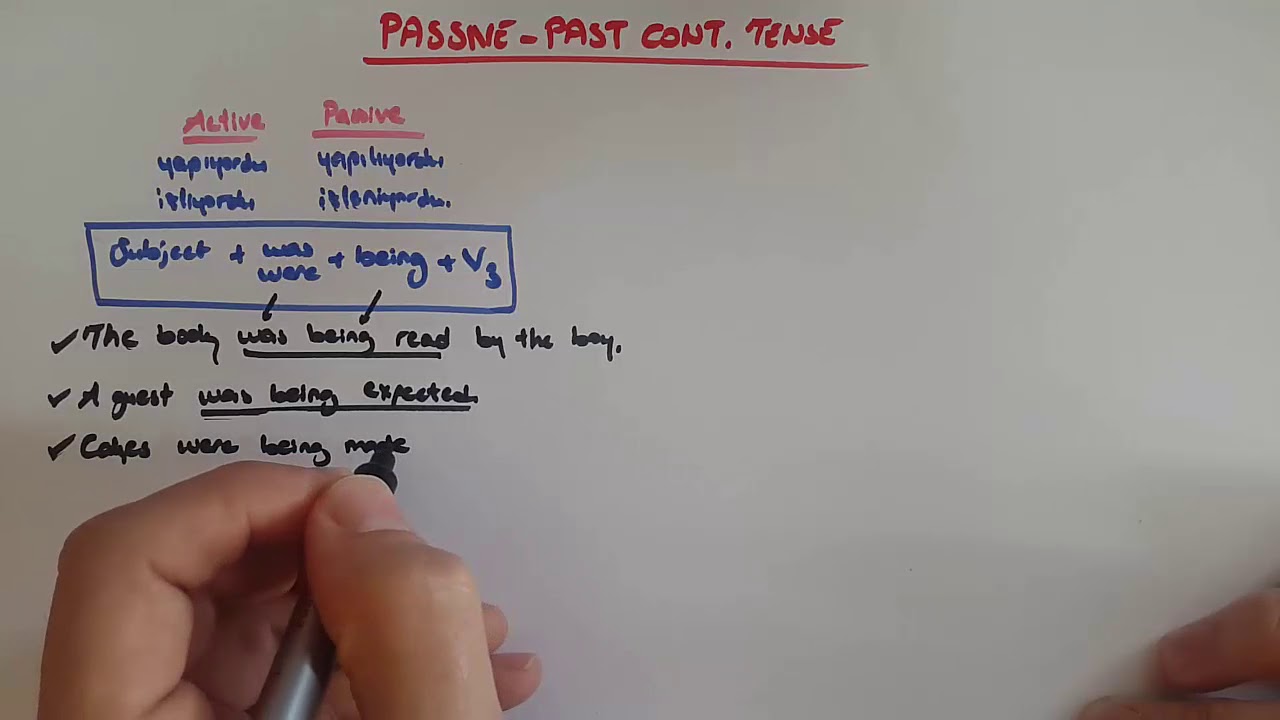 PASSIVE - PAST CONT. TENSE
Active Passive
yapıyordu yapılıyordu
izliyordu izleniyordu.
Subject + was were + being + V3
✓ The book was being read by the boy.
✓ A guest was being expected.
✓ Cakes were being made